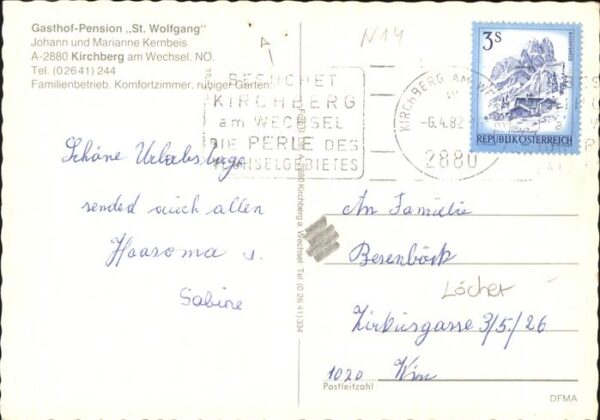 Gasthof-Pension „St. Wolfgang"
Johann und Marianne Kernbeis
A-2880 Kirchberg am Wechsel, NÖ.
Tel. (02641) 244
Familienbetrieb, Komfortzimmer, ruhiger Garten
A
N14
BESUCHET
KIRCHBERG
am WECHSEL
DIE PERLE DES
WECHSELGEBIETES
KIRCHBERG AM
-6.4.82
2880
3S
REPUBLIK ÖSTERREICH
Schöne Urlaubstage
sended euch allen
Haaroma u.
Sabine
A 2880 Kirchberg a. Wechsel Tel. (0 26 41) 334
An Familie
Berenböck
Löcher
Zirkusgasse 3/5./26
1020 Wien
Postleitzahl
DFMA